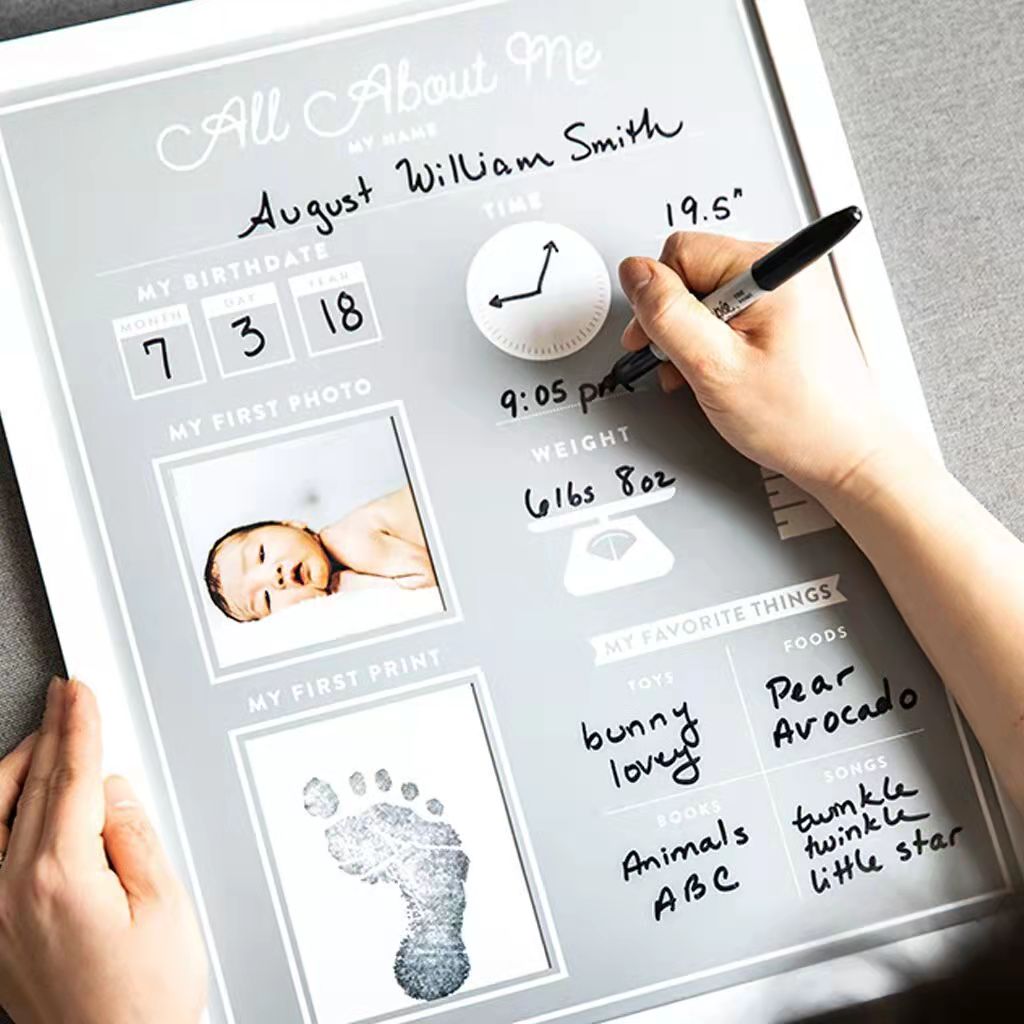 All About Me
MY NAME
August William Smith
MY BIRTHDATE
MONTH DAY YEAR
7 3 18
TIME
19.5"
9:05 pm
MY FIRST PHOTO
WEIGHT
6lbs 8oz
MY FIRST PRINT
MY FAVORITE THINGS
TOYS
bunny
lovey
FOODS
Pear
Avocado
BOOKS
Animals
ABC
SONGS
twinkle
twinkle
little star